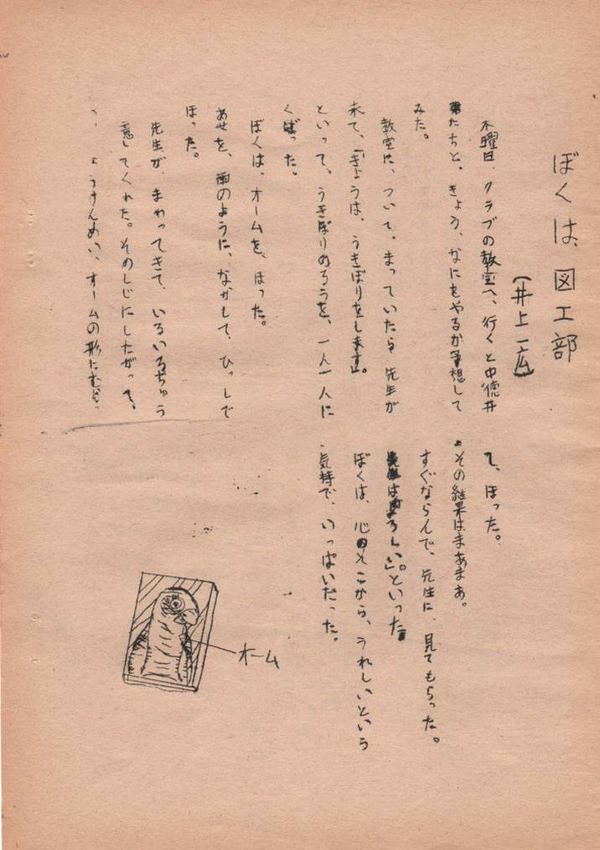 ぼくは、図工部
(井上一広)
木曜日、クラブの教室へ、行くと中徳井
君たちと、きょう、なにをやるか予想して
みた。
教室に、ついて。まっていたら先生が
来て、「きょうは、うきぼりをします」。
といって、うきぼりのろうを、一人一人に
くばった。
ぼくは、オームを、ほった。
あせを、雨のように、ながして、ひっしで
ほった。
先生が、まわってきて、いろいろちゅう
意してくれた。そのしじにしたがって、
ょうけんめい、オームの形にむど、
て、ほった。
その結果はまあまあ。
すぐならんで、先生に、見てもらった。
はよろしい」。といった
ぼくは、心のそこから、うれしいという
気持で、いっぱいだった。
オーム